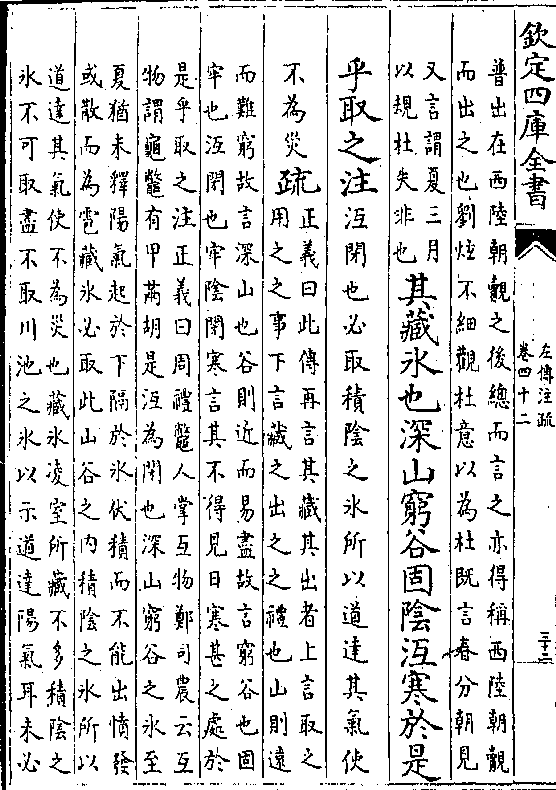 欽定四庫全書
左傳注疏
卷四十二
三十三
普出在西陸朝覿之後總而言之亦得稱西陸朝覿
而出之也劉炫不細觀杜意以為杜既言春分朝見
又言謂夏三月
以規杜失非也
其藏氷也深山窮谷固隂沍寒於是
乎取之注沍閉也必取積隂之氷所以道達其氣使
不為災疏正義曰此傳再言其藏其出者上言取之
用之之事下言藏之出之之禮也山則遠
而難窮故言深山也谷則近而易盡故言窮谷也固
牢也沍閉也牢隂閉寒言其不得見日寒甚之處於
是乎取之注正義曰周禮鼈人掌互物鄭司農云互
物謂龜鼈有甲㒼胡是沍為閉也深山窮谷之氷至
夏猶未釋陽氣起於下隔於氷伏積而不能出憤發
或散而為雹藏氷必取此山谷之内積隂之氷所以
道達其氣使不為災也藏氷凌室所藏不多積隂之
氷不可取盡不取川池之氷以示道達陽氣耳未必